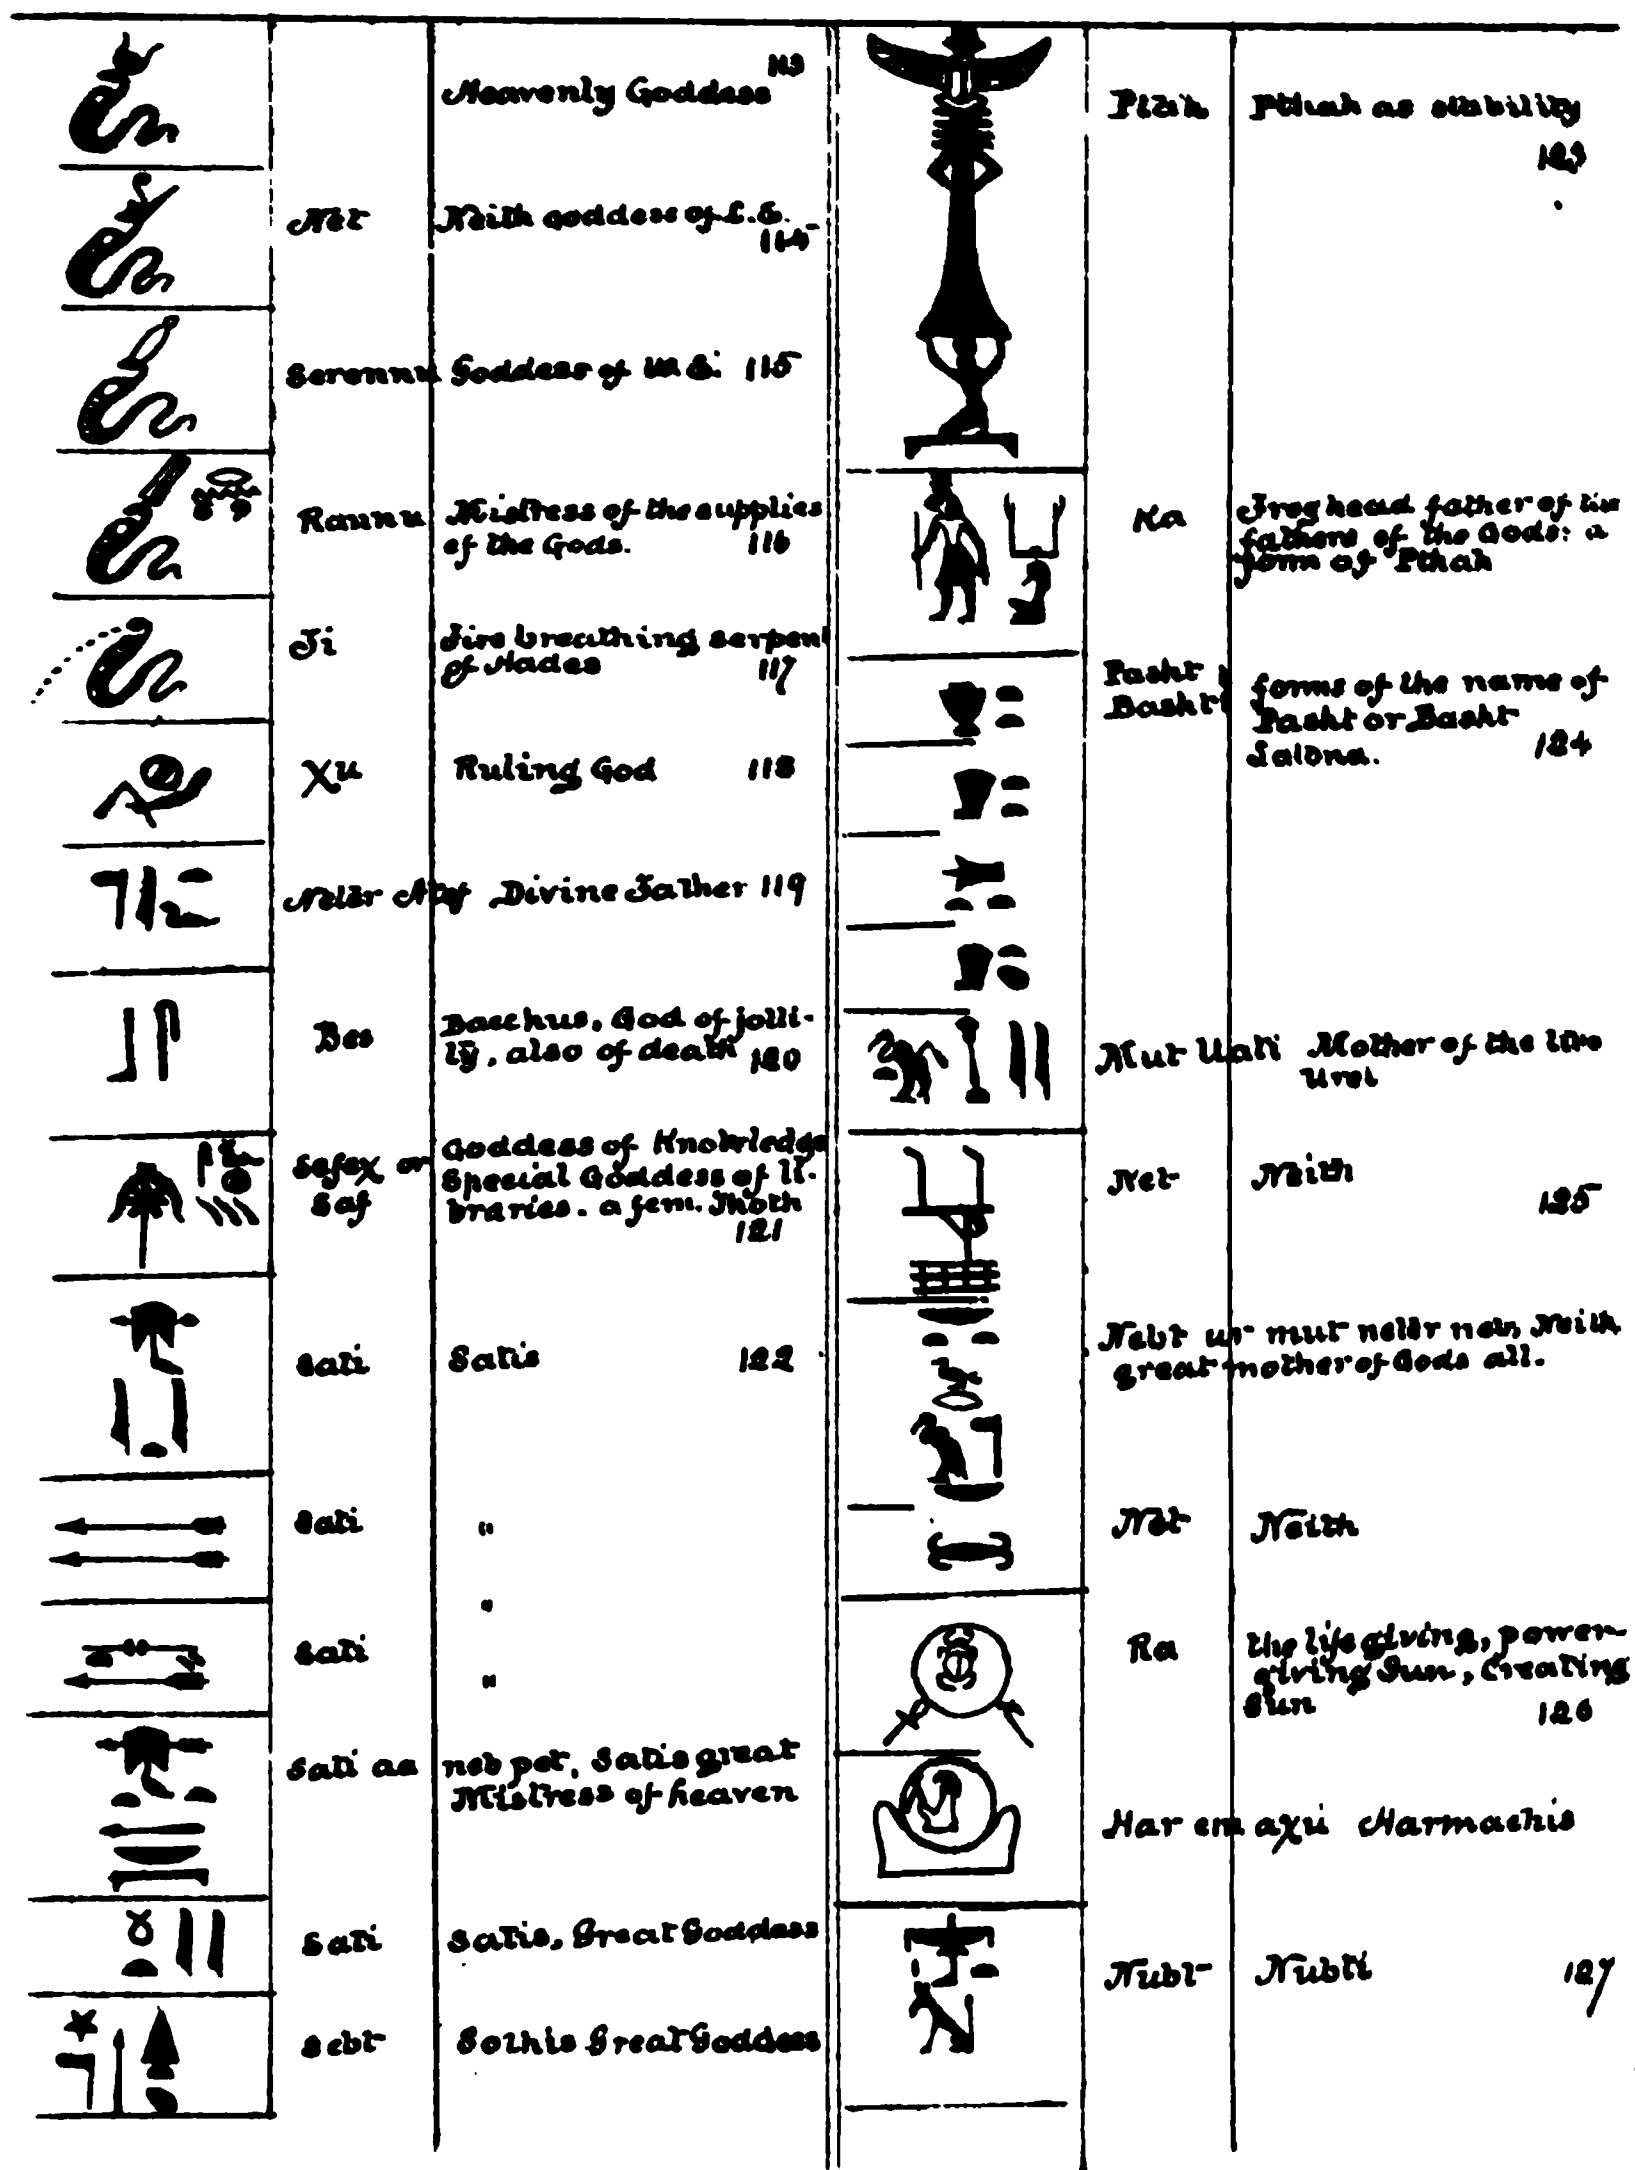 Heavenly Goddess 113
Net Neith goddess of L.E.
114
Serennu Goddess of W.E. 115
Rannu Mistress of the supplies
of the Gods. 116
Ji Fire breathing serpent
of Hades 117
χu Ruling God 118
Neter Atef Divine Father 119
Bes Bacchus, God of jolli-
ty, also of death 120
Safeχ or Saf
Goddess of Knowledge
Special Goddess of li-
braries. a fem. Thoth
121
Sati Satis 122
Sati "
"
Sati "
Sati as neb pet, Satis great
Mistress of heaven
Sati Satis, Great Goddess
Sebt Sothis Great Goddess
Ptah Pthah as stability
123
Ka Frog head father of the
fathers of the Gods: a
form of Pthah
Pasht
Basht
forms of the name of
Pasht or Basht
124
Mut Uati Mother of the two
Urei
Net Neith
125
Nebt ur mut neter neb, Neith
great mother of Gods all.
Net Neith
Ra the life giving, power-
giving Sun, Creating
Sun 126
Har em aχu Harmachis
Nubt Nubti 127